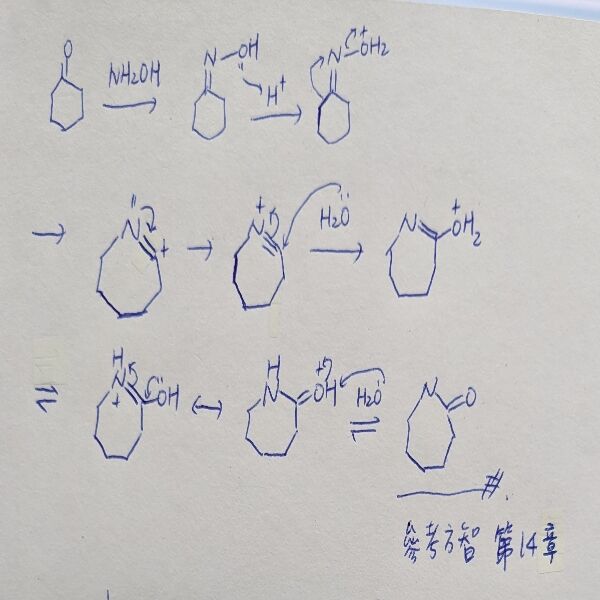 O NH2OH N-OH H+ N-OH2+
N + N+ H2O N OH2+
H N+ OH H N OH+ H2O N O
#.
參考方智 第14章